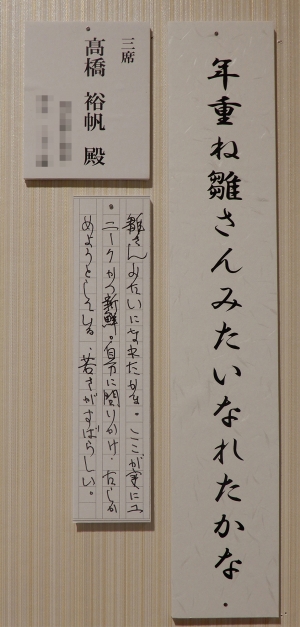 年重ね雛さんみたいなれたかな
三席
髙橋 裕帆 殿
雛さんみたいになれたかな。ここが実にユ
ニークかつ新鮮。自分に問いかけ、たしか
めようとしている、若さがすばらしい。